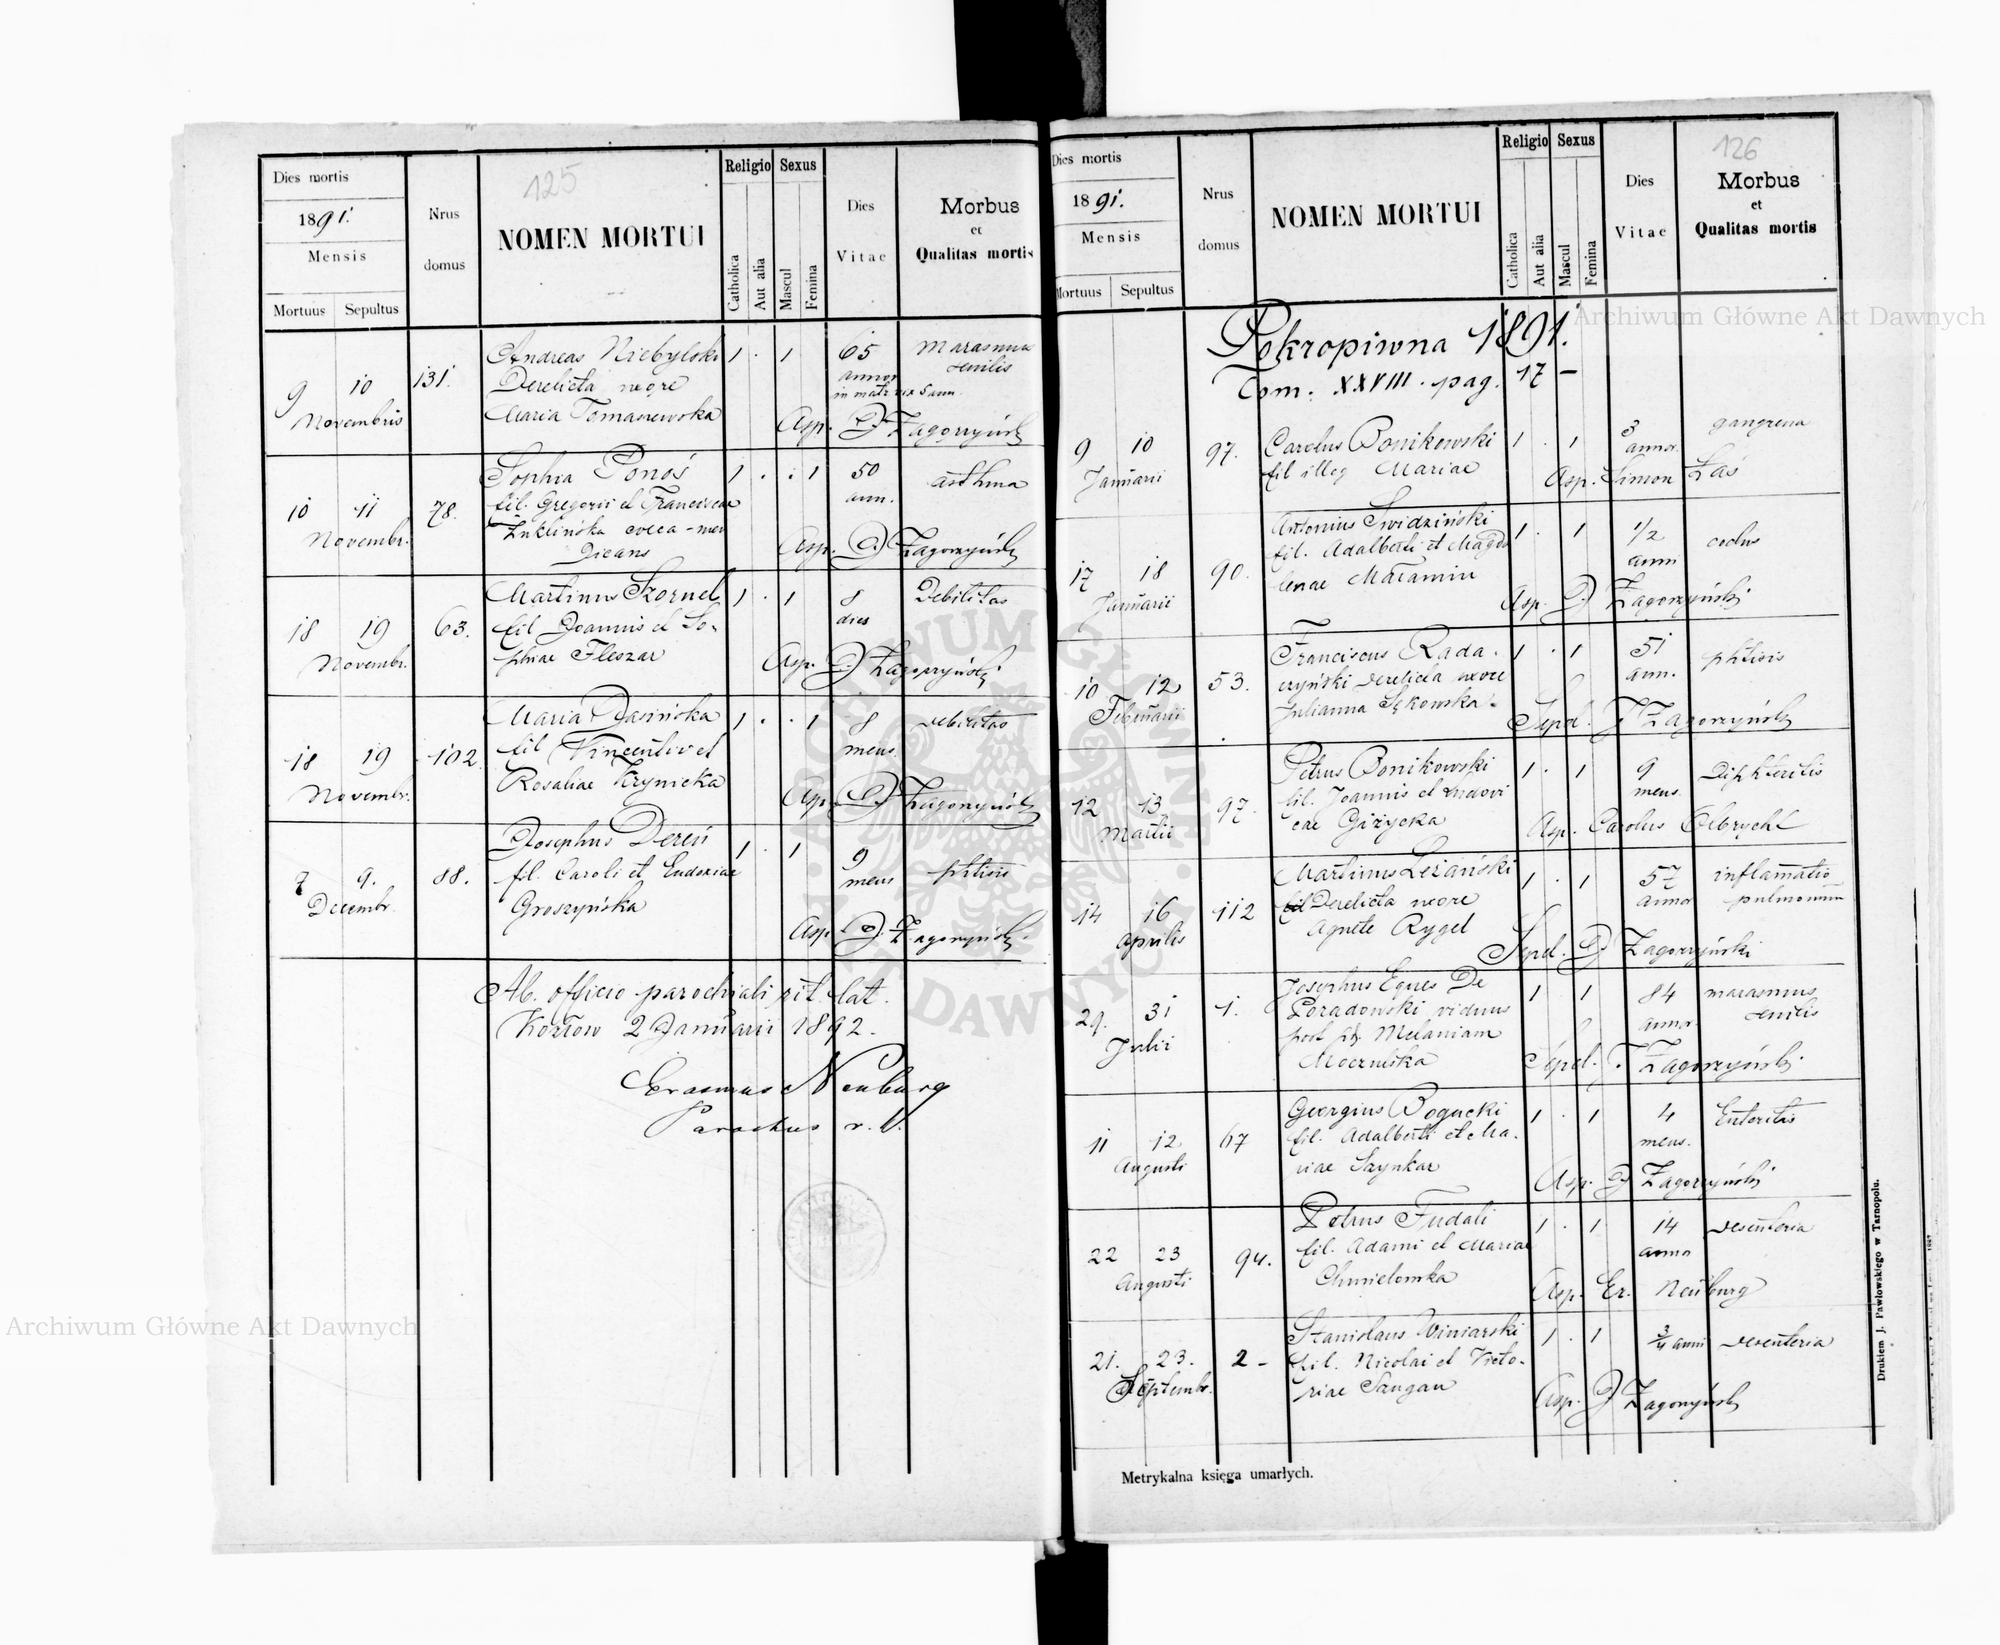 125
Dies mortis
1891.
Mensis
Mortuus Sepultus
Nrus domus
NOMEN MORTUI
Religio
Catholica
Aut alia
Sexus
Mascul
Femina
Dies Vitae
Morbus
et
Qualitas mortis
9 10 Novembris 131.
Andreas Niebylski 1 . 1 65 annor Marasmus senilis
Derelicta
Maria Tomaszewska Asp. D Zagórzyński
10 11 Novembr. 78.
Sophia Ponoś 1 . . 1 50 ann. asthma
fil. Gregorii et Franciscae
coeca - men
dicans Asp. D Zagorzyński
18 19 Novembr. 63.
Martinus Szornel 1 . 1 8 dies Debilitas
fil Joannis et So-
phiae Fleszar Asp. D Zagorzyński
18 19 Novembr. 102
Maria Jasińska 1 . . 1 8 mens debilitas
fil Vincentii et
Rosaliae Krynicka Asp. D Zagorzyński
7 9. Decembr. 88.
Josephus Dereń 1 . 1 9 mens phtisis
fil. Caroli et Eudoxiae
Groszyńska Asp. D. Zagorzyński
Ab officio parochiali rit. lat.
Kozłow 2 Januarii 1892.
Erasmus Neuburg
Parochus r. l.
126
Dies mortis
1891.
Mensis
Mortuus Sepultus
Nrus domus
NOMEN MORTUI
Religio
Catholica
Aut alia
Sexus
Mascul
Femina
Dies Vitae
Morbus
et
Qualitas mortis
Pokropiwna 1891.
Tom. XXVIII. pag. 17 -
9 10 Januarii 97.
Carolus Bonikowski 1 . 1 3 annor. gangrena
fil illeg Mariae Asp. Simon Łaś
17 18 Januarii 90.
Antonius Swidziński 1 . 1 1/2 anni
fil. Adalberti et Magda
lenae Asp. D Zagorzyński
10 12 Februarii 53.
Franciscus Rada- 1 . 1 51 ann. phtisis
czyński derelicta uxore
Julianna Sękowska Sepel. D Zagorzyński
12 13 Martii 97.
Petrus Bonikowski 1 . 1 9 mens. Diphteritis
fil. Joannis et Ludovi
cae Giżycka Asp. Carolus Olbrycht
14 16 Aprilis 112
Martinus Leżański 1 . 1 57 annor inflamatio pulmonum
Derelicta uxore
Agnete Rygel Sepel. D Zagorzyński
29. 31 Julii 1.
Josephus Eques De 1 1 84 annor. marasmus senilis
Poradowski viduus
post Melaniam
Moczulska Sepel. D Zagorzyński
11 12 Augusti 67
Georgius Bogucki 1 . 1 4 mens. Enteritis
fil. Adalberti et Ma-
riae Szynkar Asp. D Zagorzyński
22 23 Augusti 94.
Petrus Fudali 1 . 1 14 annor desenteria
fil. Adami et Mariae
Chmielowska Asp. Er. Neuburg
21. 23. Septembr. 2 -
Stanislaus Winiarski 1 . 1 3/4 anni desenteria
fil. Nicolai et Victo-
riae Saugan Asp. D Zagorzyński
Metrykalna księga umarłych.
Drukiem J. Pawłowskiego w Tarnopolu.
Archiwum Główne Akt Dawnych
Archiwum Główne Akt Dawnych